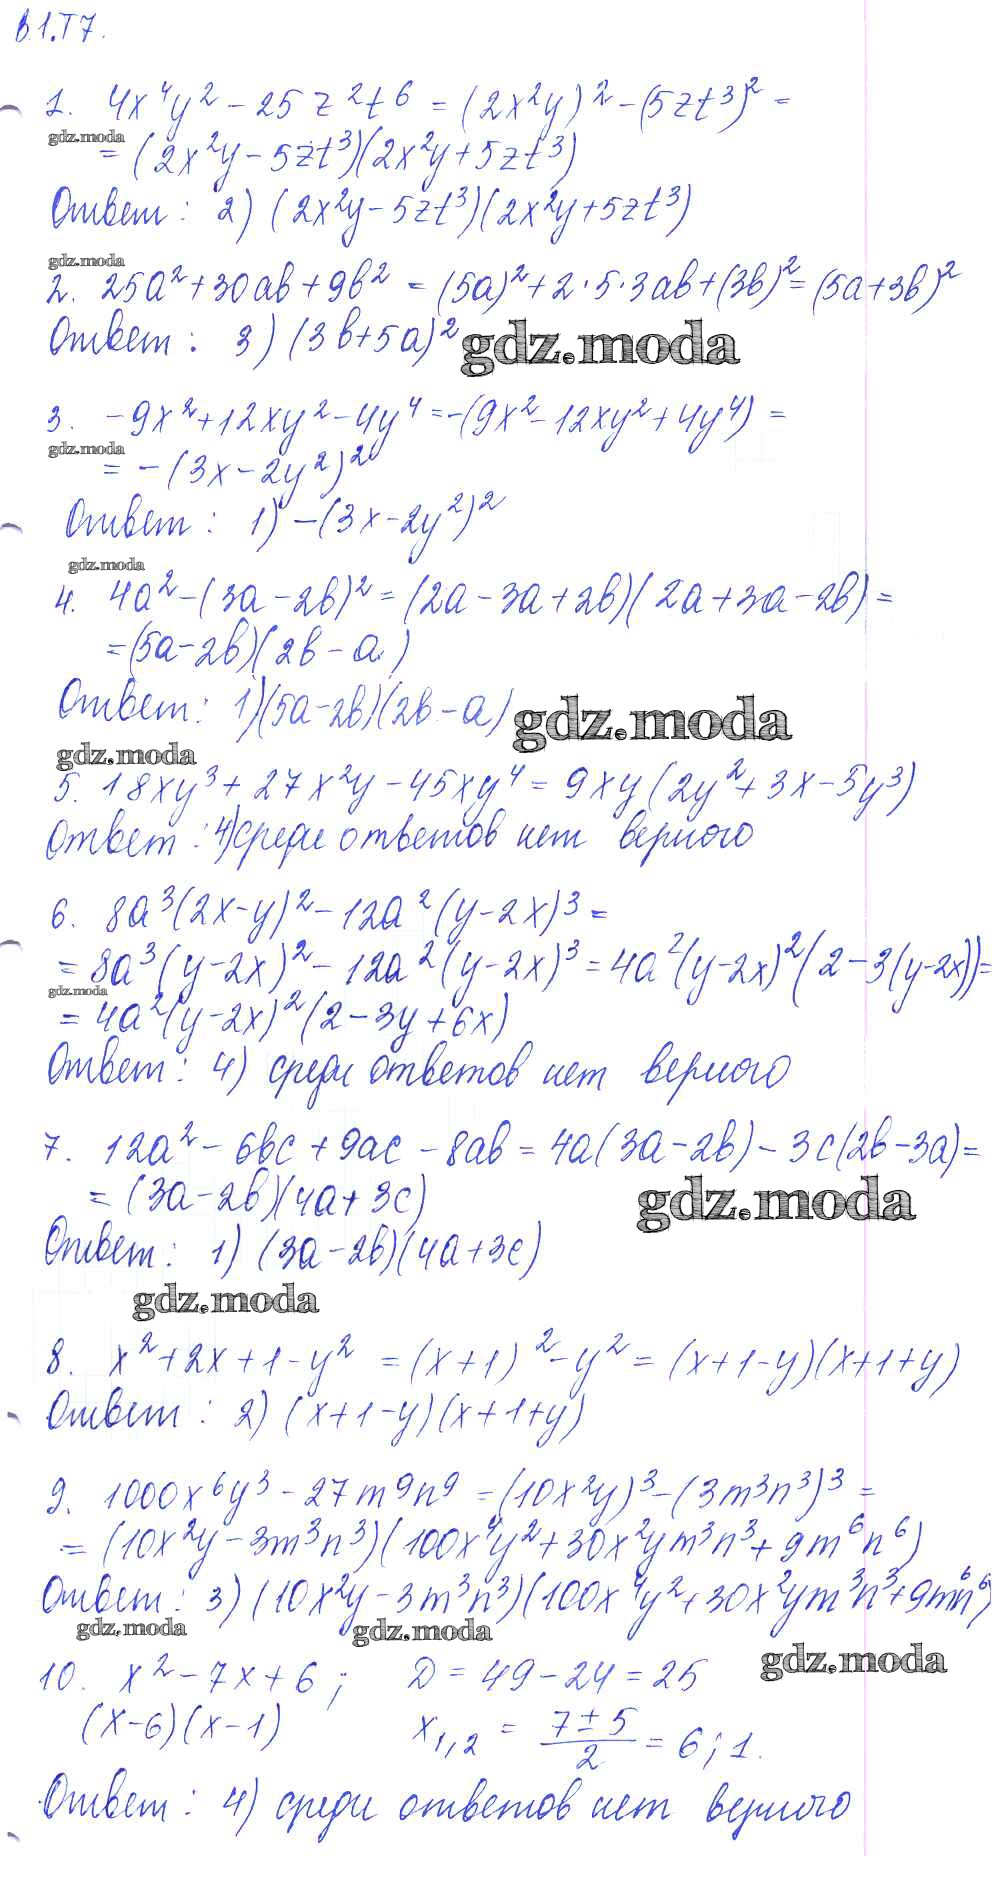 В1.Т7.
1. 4x⁴y² - 25z²t⁶ = (2x²y)² - (5zt³)² =
gdz.moda
= (2x²y - 5zt³)(2x²y + 5zt³)
Ответ: 2) (2x²y - 5zt³)(2x²y + 5zt³)
gdz.moda
2. 25a² + 30ab + 9b² = (5a)² + 2·5·3ab + (3b)² = (5a + 3b)²
Ответ: 3) (3b + 5a)²
gdz.moda
3. -9x² + 12xy² - 4y⁴ = -(9x² - 12xy² + 4y⁴) =
gdz.moda
= -(3x - 2y²)²
Ответ: 1) -(3x - 2y²)²
gdz.moda
4. 4a² - (3a - 2b)² = (2a - 3a + 2b)(2a + 3a - 2b) =
= (5a - 2b)(2b - a)
Ответ: 1) (5a - 2b)(2b - a)
gdz.moda
gdz.moda
5. 18xy³ + 27x²y - 45xy⁴ = 9xy(2y² + 3x - 5y³)
Ответ: 4) среди ответов нет верного
6. 8a³(2x - y)² - 12a²(y - 2x)³ =
= 8a³(y - 2x)² - 12a²(y - 2x)³ = 4a²(y - 2x)²(2 - 3(y - 2x)) =
gdz.moda
= 4a²(y - 2x)²(2 - 3y + 6x)
Ответ: 4) среди ответов нет верного
7. 12a² - 6bc + 9ac - 8ab = 4a(3a - 2b) - 3c(2b - 3a) =
= (3a - 2b)(4a + 3c)
gdz.moda
Ответ: 1) (3a - 2b)(4a + 3c)
gdz.moda
8. x² + 2x + 1 - y² = (x + 1)² - y² = (x + 1 - y)(x + 1 + y)
Ответ: 2) (x + 1 - y)(x + 1 + y)
9. 1000x⁶y³ - 27m⁹n⁹ = (10x²y)³ - (3m³n³)³ =
= (10x²y - 3m³n³)(100x⁴y² + 30x²ym³n³ + 9m⁶n⁶)
Ответ: 3) (10x²y - 3m³n³)(100x⁴y² + 30x²ym³n³ + 9m⁶n⁶)
gdz.moda
gdz.moda
gdz.moda
10. x² - 7x + 6; D = 49 - 24 = 25
(x - 6)(x - 1) x₁,₂ = (7 ± 5)/2 = 6; 1.
Ответ: 4) среди ответов нет верного